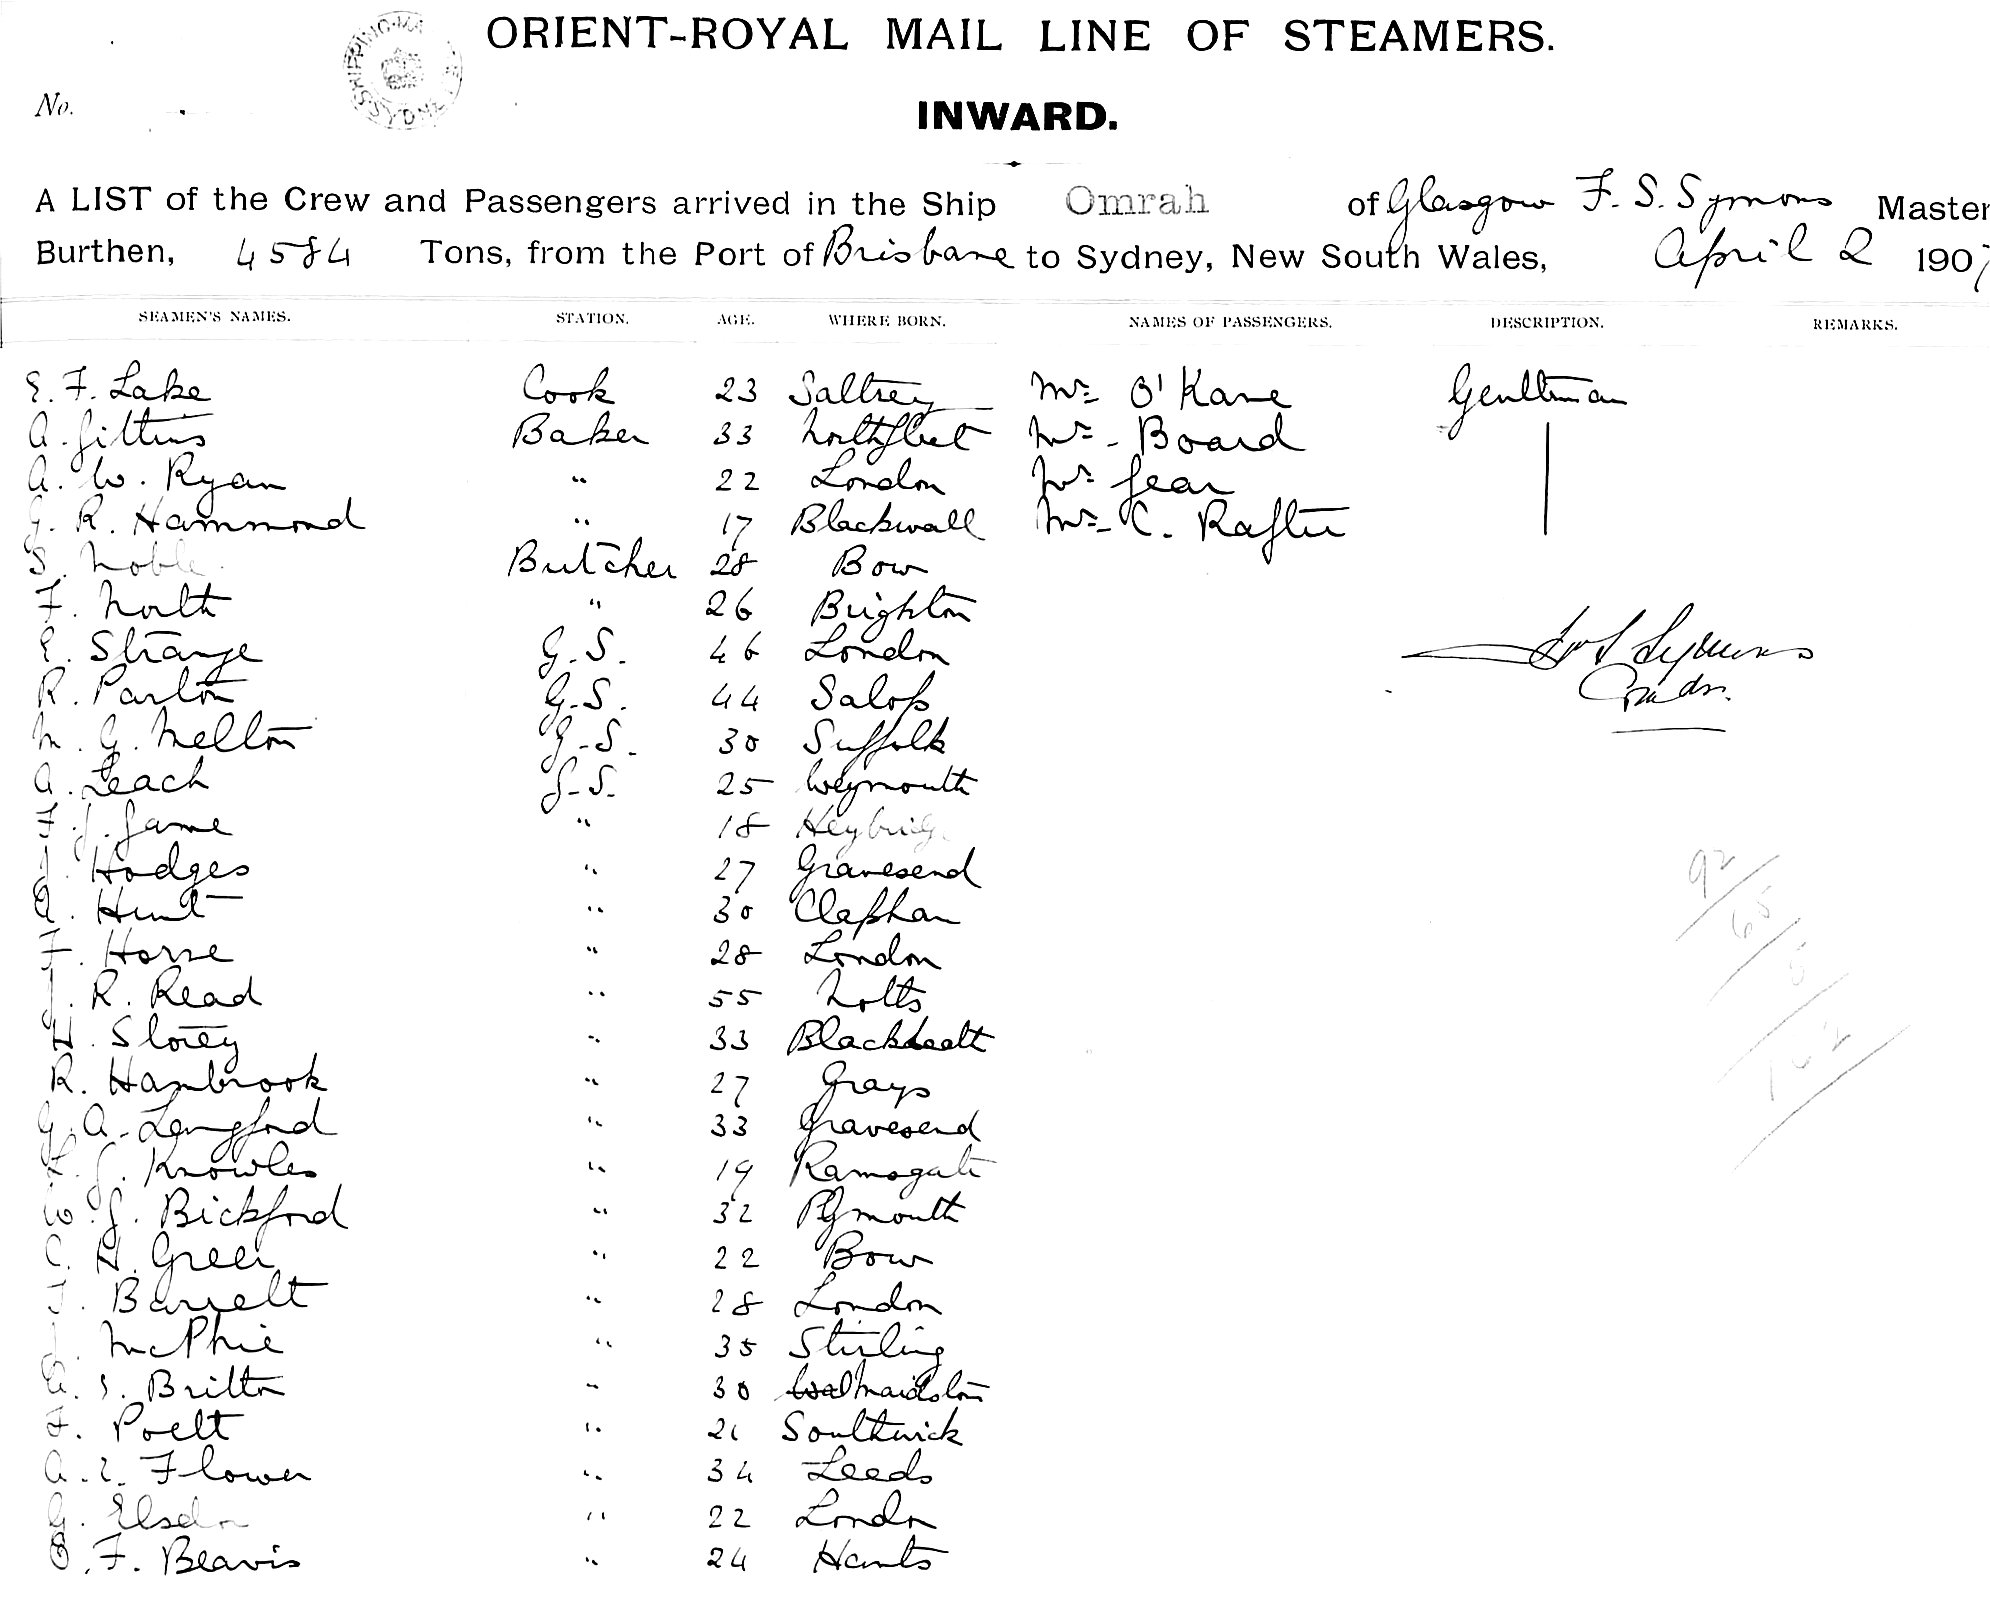 ORIENT-ROYAL MAIL LINE OF STEAMERS.
SHIPPING MA SYDNE
No.
INWARD.
A LIST of the Crew and Passengers arrived in the Ship Omrah of Glasgow F. S. Symons Master
Burthen, 4584 Tons, from the Port of Brisbane to Sydney, New South Wales, April 2 1907
SEAMEN'S NAMES. STATION. AGE. WHERE BORN. NAMES OF PASSENGERS. DESCRIPTION. REMARKS.
E. F. Lake Cook 23 Saltrey Mr. O'Kane Gentleman
A. Gittins Baker 33 Northfleet Mr. Board
A. W. Ryan " 22 London Mr. Gear
G. R. Hammond " 17 Blackwall Mr. C. Rafter
S. Noble Butcher 28 Bow
F. North " 26 Brighton
E. Strange G.S. 46 London
F S Symons
R. Parton G.S. 44 Salop
Comdr.
M. G. Mellon G.S. 30 Suffolk
A. Leach G.S. 25 Weymouth
F. J. Game " 18 Heybridg
J. Hodges " 27 Gravesend
A. Hunt " 30 Clapham
F. Horne " 28 London
J. R. Read " 55 Notts
H. Storey " 33 Blackheath
R. Hambrook " 27 Grays
G. A. Langford " 33 Gravesend
H. J. Knowles " 19 Ramsgate
W. J. Bickford " 32 Plymouth
C. H. Green " 22 Bow
J. Barrett " 28 London
J. McPhie " 35 Stirling
E. S. Britton " 30 Maidstone
F. Poett " 21 Southwick
A. E. Flower " 34 Leeds
G. Elsdon " 22 London
B. F. Beavis " 24 Hants
92
65
5
162